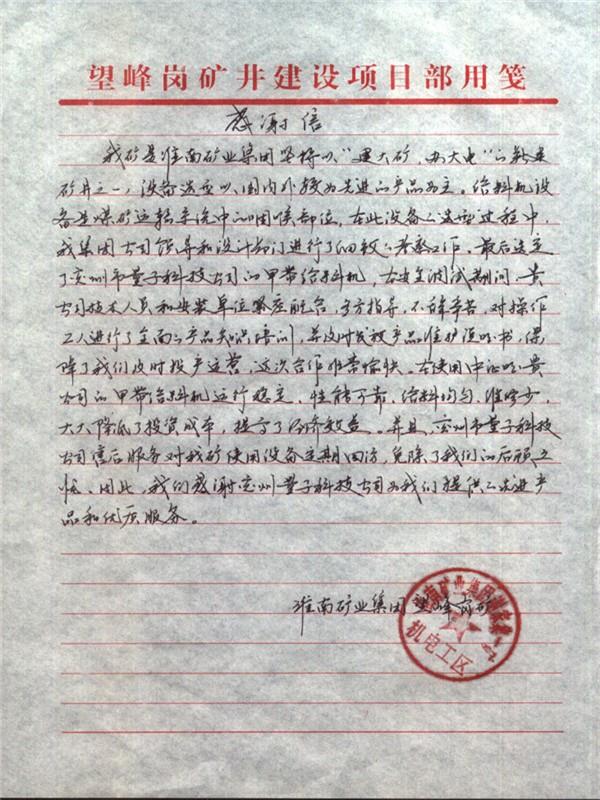 望峰岗矿井建设项目部用笺
感谢信
我矿是淮南矿业集团坚持以“建大矿、办大电”的新建
矿井之一，设备选型以国内外较为先进的产品为主。给料机设
备是煤矿运输系统中的咽喉部位，在此设备的选型过程中，
我集团公司领导和设计部门进行了细致的考察工作。最后选定
了兖州市量子科技公司的甲带给料机，在安全调试期间，贵
公司技术人员和安装单位紧密配合，多方指导，不辞辛苦，对操作
工人进行了全面的产品知识培训，并及时发放产品维护说明书，保
障了我们及时投产运营，这次合作非常愉快。在使用中证明：贵
公司的甲带给料机运行稳定，性能可靠，给料均匀，维修少，
大大降低了投资成本，提高了经济效益。并且，兖州市量子科技
公司售后服务对我矿使用设备定期回访，免除了我们的后顾之
忧。因此，我们感谢兖州量子科技公司为我们提供的先进产
品和优质服务。
淮南矿业集团望峰岗矿
机电工区